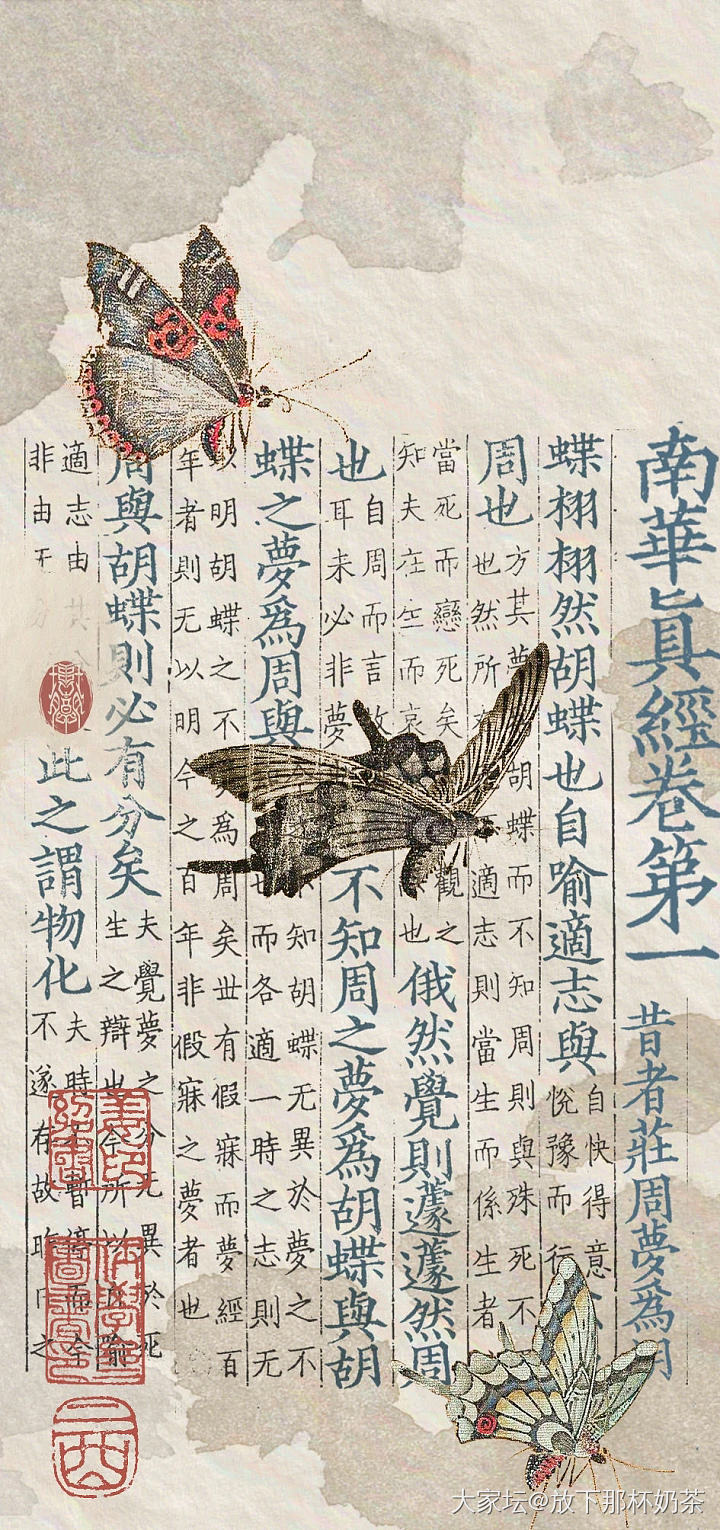 南華眞經卷第一
昔者莊周夢爲胡
蝶栩栩然胡蝶也自喻適志與
自快得意
悅豫而行
周也
方其夢胡蝶而不知周則與殊死不
也然所在適志則當生而係生者
當死而戀死矣觀之
知夫在生而哀也
俄然覺則蘧蘧然周
也
自周而言故
耳未必非夢
不知周之夢爲胡蝶與胡
蝶之夢爲周與
知胡蝶无異於夢之不
也而各適一時之志則无
以明胡蝶之不爲周矣世有假寐而夢經百
年者則无以明今之百年非假寐之夢者也
周與胡蝶則必有分矣
夫覺夢之分无異於死
生之辯也今所以自喻
適志由其
非由无
此之謂物化
夫時不暫停而今
不遂存故昨日之
大家坛@放下那杯奶茶